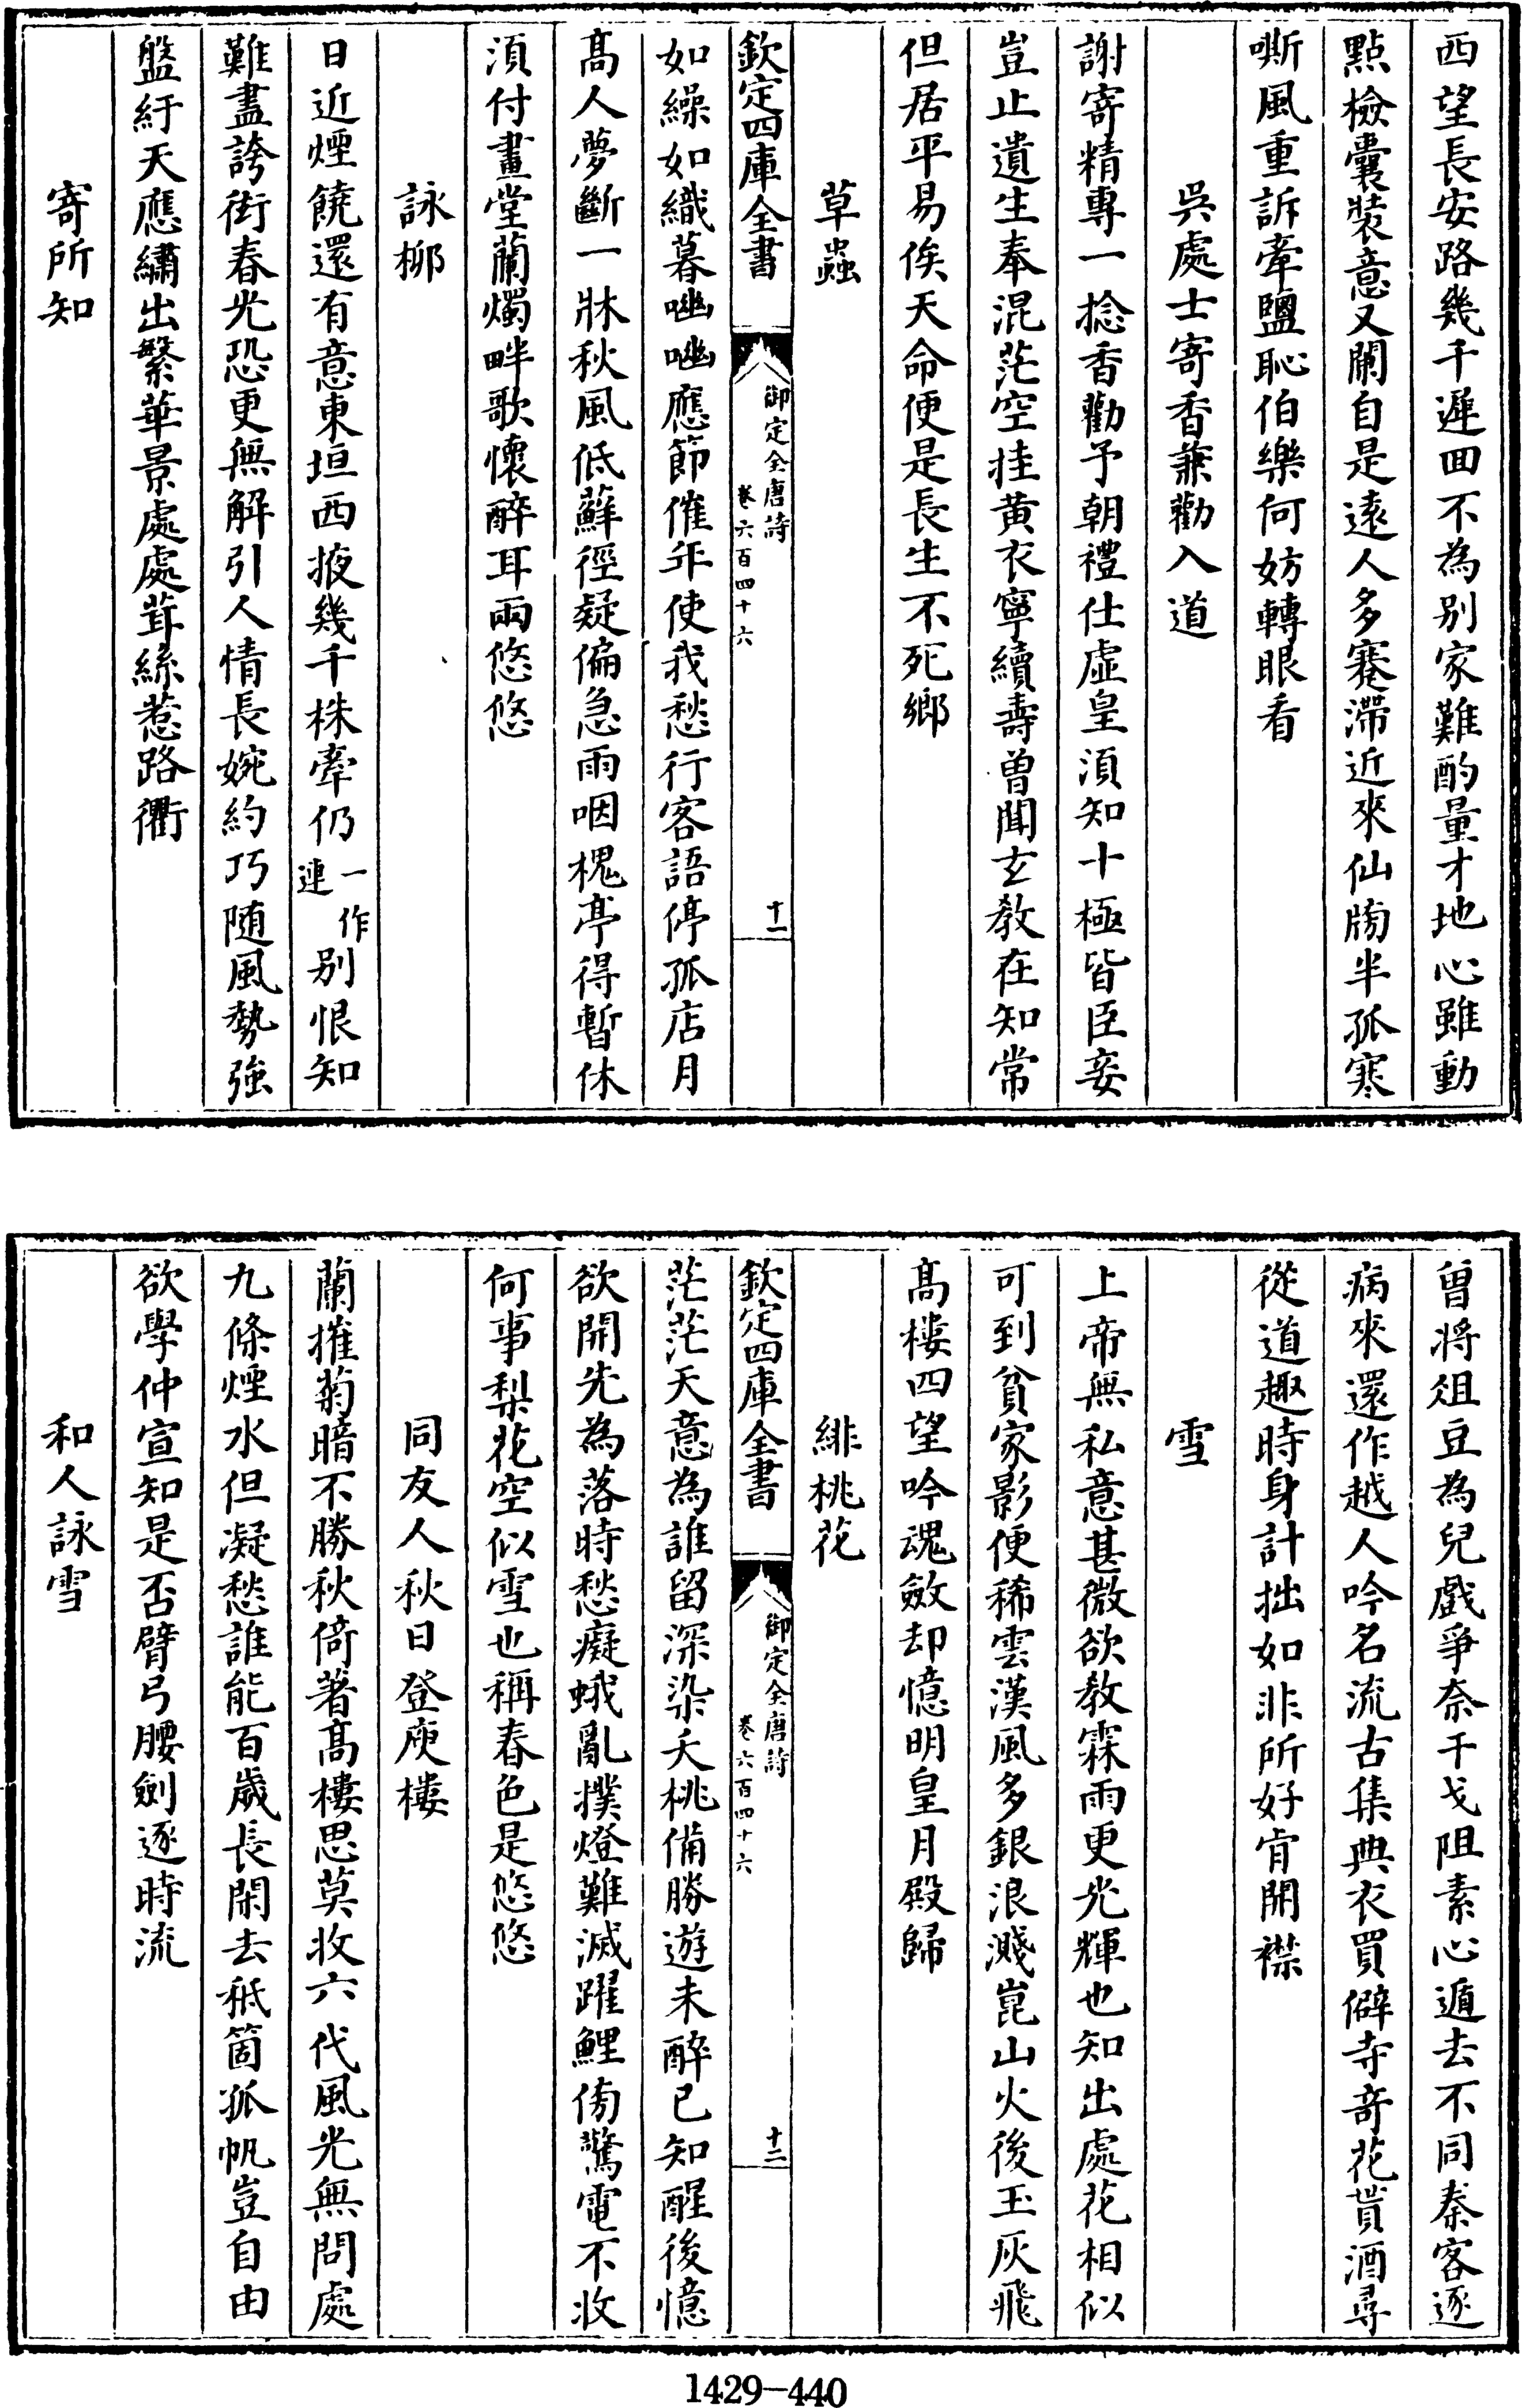 西望長安路幾千遲回不為别家難酌量才地心雖動
點檢囊裝意又闌自是遠人多蹇滯近來仙牓半孤寒
嘶風重訴牽鹽恥伯樂何妨轉眼看
吳處士寄香兼勸入道
謝寄精專一捻香勸予朝禮仕虛皇須知十極皆臣妾
豈止遺生奉混茫空挂黄衣寧續壽曽聞玄教在知常
但居平易俟天命便是長生不死鄉
草蟲
欽定四庫全書
御定全唐詩
卷六百四十六
十一
如繰如織暮㘭㘭應節催年使我愁行客語停孤店月
髙人夢斷一牀秋風低蘚徑疑偏急雨咽槐亭得暫休
須付畫堂蘭燭畔歌懷醉耳兩悠悠
詠栁
日近煙饒還有意東垣西掖幾千株牽仍一作連别恨知
難盡誇衒春光恐更無解引人情長婉約巧随風勢強
盤紆天應繡出繁華景處處茸絲惹路衢
寄所知
曽將俎豆為兒戲爭奈干戈阻素心遁去不同秦客逐
病來還作越人吟名流古集典衣買僻寺奇花貰酒尋
從道趣時身計拙如非所好肯開襟
雪
上帝無私意甚微欲教霖雨更光輝也知出處花相似
可到貧家影便稀雲漢風多銀浪濺崑山火後玉灰飛
髙樓四望吟魂斂却憶明皇月殿歸
緋桃花
欽定四庫全書
御定全唐詩
卷六百四十六
十二
茫茫天意為誰留深染夭桃備勝遊未醉已知醒後憶
欲開先為落時愁癡蛾亂撲燈難滅躍鯉傍驚電不收
何事梨花空似雪也稱春色是悠悠
同友人秋日登庾樓
蘭摧菊暗不勝秋倚著髙樓思莫收六代風光無問處
九條煙水但凝愁誰能百歲長閑去秪箇孤帆豈自由
欲學仲宣知是否臂弓腰劍逐時流
和人詠雪
1429-440